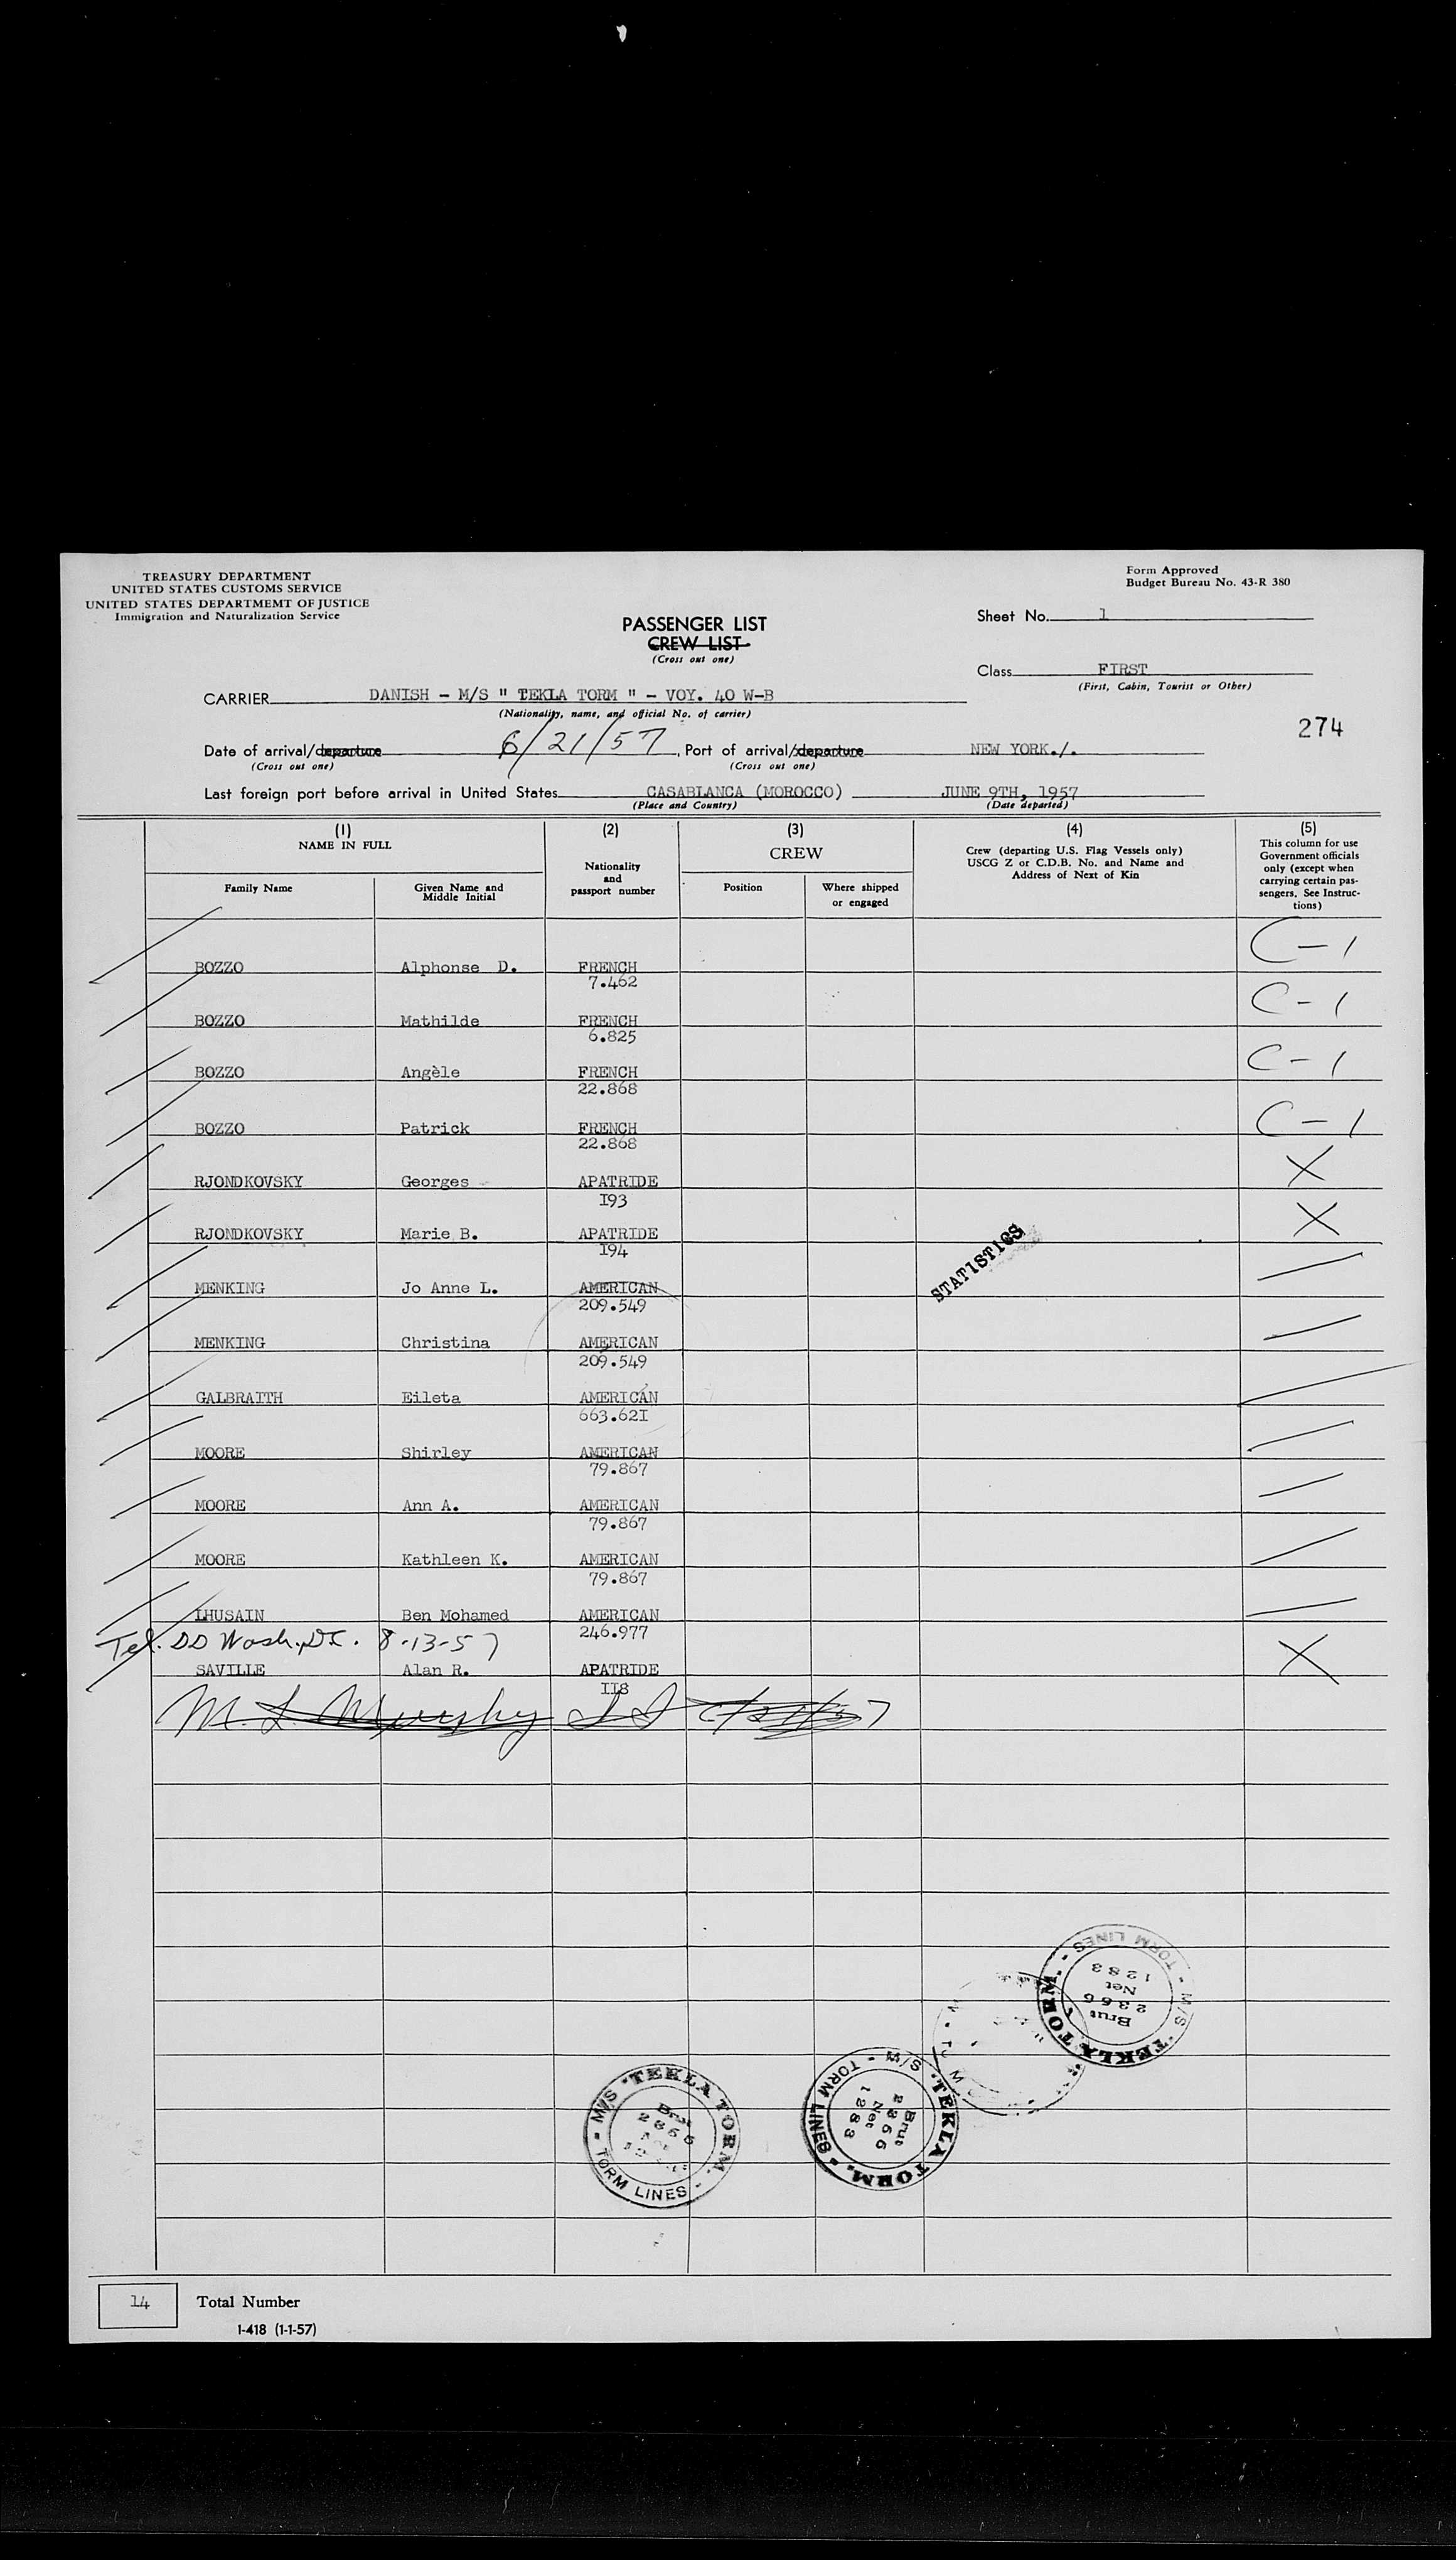 TREASURY DEPARTMENT
UNITED STATES CUSTOMS SERVICE
UNITED STATES DEPARTMEMT OF JUSTICE
Immigration and Naturalization Service
Form Approved
Budget Bureau No. 43-R 380
PASSENGER LIST
CREW LIST
(Cross out one)
Sheet No. 1
Class FIRST
(First, Cabin, Tourist or Other)
CARRIER DANISH - M/S " TEKLA TORM " - VOY. 40 W-B
(Nationality, name, and official No. of carrier)
274
Date of arrival/departure 6/21/57, Port of arrival/departure NEW YORK./.
(Cross out one) (Cross out one)
Last foreign port before arrival in United States CASABLANCA (MOROCCO) JUNE 9TH, 1957
(Place and Country) (Date departed)
(1) (2) (3) (4) (5)
NAME IN FULL
Family Name
Given Name and
Middle Initial
Nationality
and
passport number
CREW
Position
Where shipped
or engaged
Crew (departing U.S. Flag Vessels only)
USCG Z or C.D.B. No. and Name and
Address of Next of Kin
This column for use
Government officials
only (except when
carrying certain pas-
sengers. See Instruc-
tions)
BOZZO Alphonse D. FRENCH C-1
7.462
BOZZO Mathilde FRENCH C-1
6.825
BOZZO Angèle FRENCH C-1
22.868
BOZZO Patrick FRENCH C-1
22.868
RJONDKOVSKY Georges APATRIDE X
I93
RJONDKOVSKY Marie B. APATRIDE X
I94
STATISTICS
MENKING Jo Anne L. AMERICAN
209.549
MENKING Christina AMERICAN
209.549
GALBRAITH Eileta AMERICAN
663.62I
MOORE Shirley AMERICAN
79.867
MOORE Ann A. AMERICAN
79.867
MOORE Kathleen K. AMERICAN
79.867
LHUSAIN Ben Mohamed AMERICAN
246.977
Tel. DD Wash. D.C. 8-13-57
SAVILLE Alan R. APATRIDE X
II8
M. L. Murphy
M/S "TEKLA TORM. - TORM LINES -
Brut
2366
M/S "TEKLA TORM. - TORM LINES -
Brut
2366
Net
1283
M/S "TEKLA TORM. - TORM LINES -
Brut
2366
Net
1283
14 Total Number
I-418 (1-1-57)